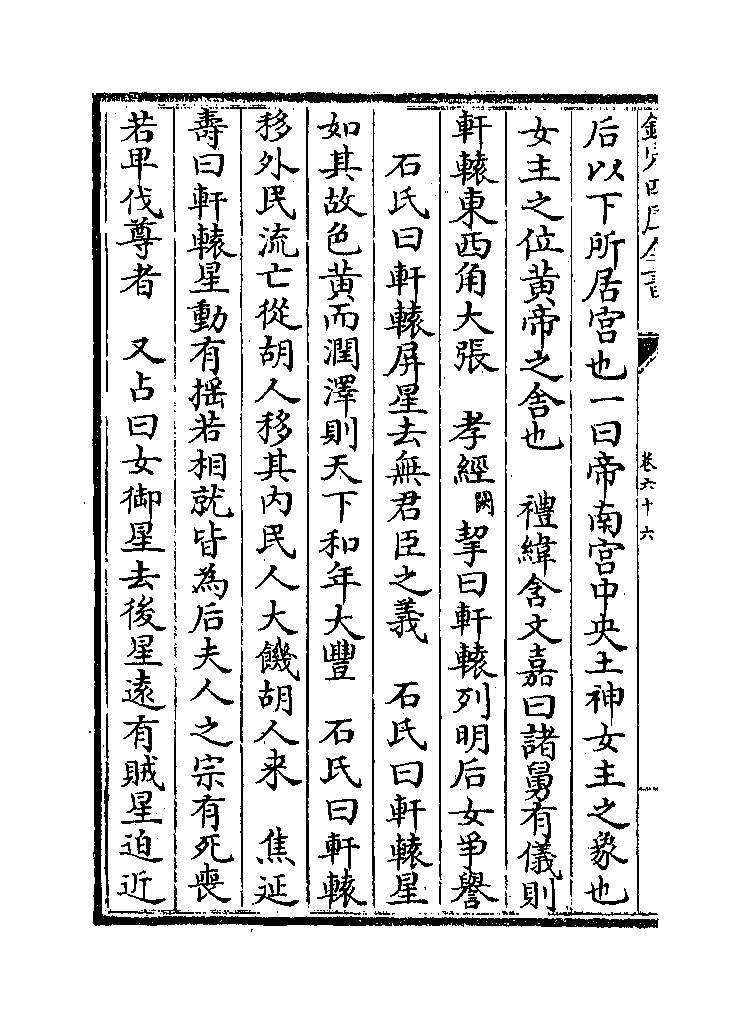 欽定四庫全書
卷六十六
后以下所居宫也一曰帝南宫中央土神女主之象也
女主之位黄帝之舍也　禮緯含文嘉曰諸舅有儀則
軒轅東西角大張　孝經闕挈曰軒轅列明后女争譽
石氏曰軒轅屏星去無君臣之義　石氏曰軒轅星
如其故色黄而潤澤則天下和年大豐　石氏曰軒轅
移外民流亡從胡人移其内民人大饑胡人来　焦延
壽曰軒轅星動有揺若相就皆為后夫人之宗有死喪
若甲伐尊者　又占曰女御星去後星逺有賊星迫近